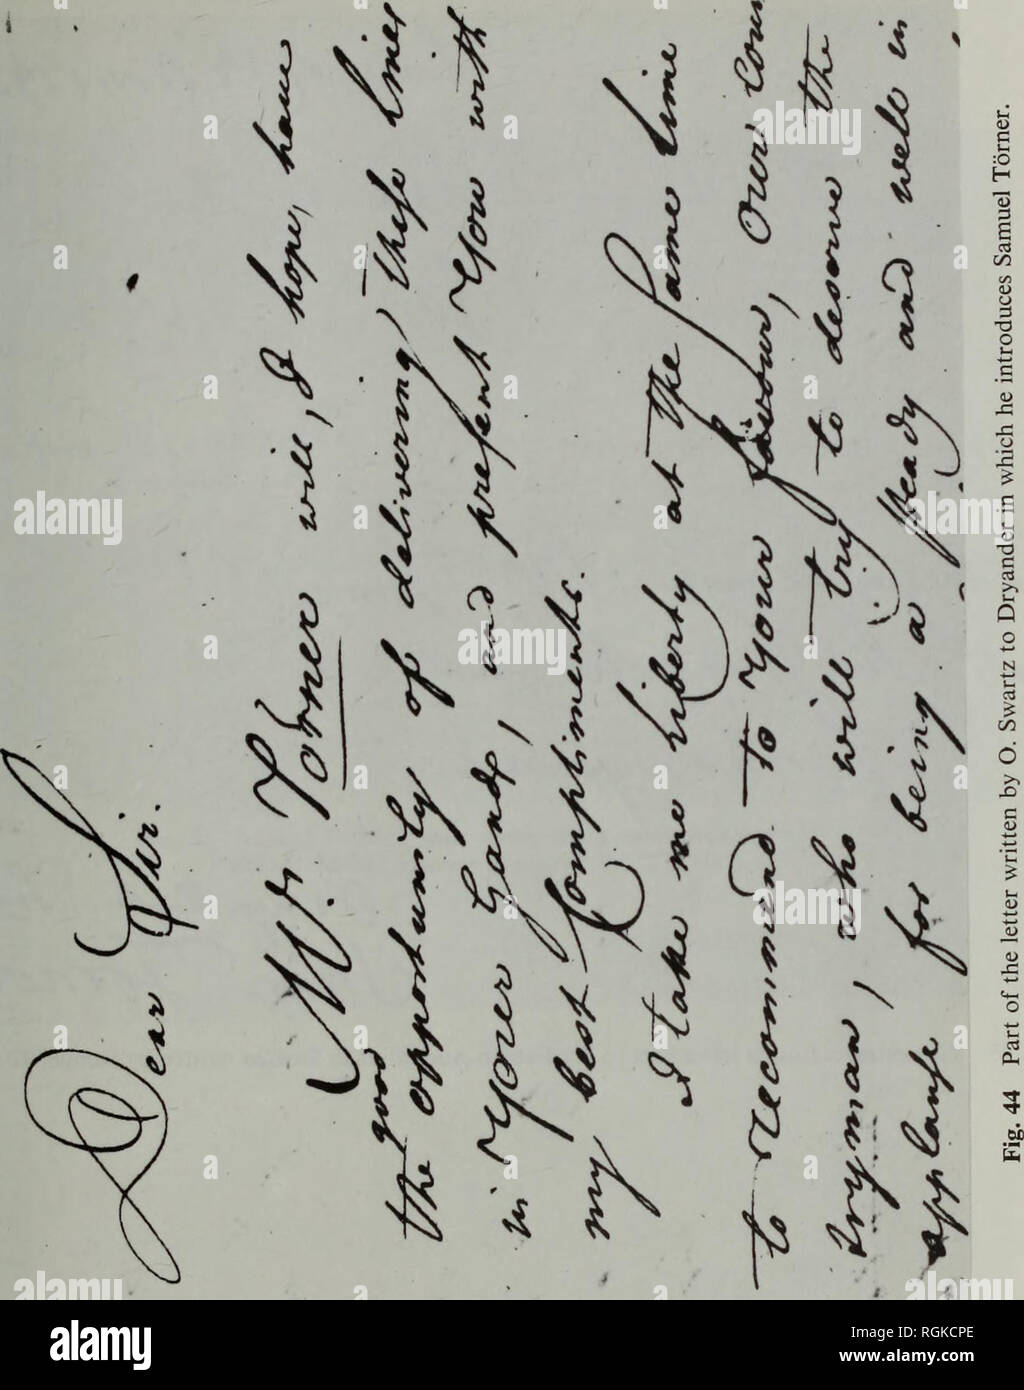 Dear Sir.
Mr. Törner will, I hope, have
the good opportunity of delivering these lines
in Your Hands, and present You with
my best Compliments.
I take me liberty at the same time
to recommend to Your favour, Our Coun
tryman, who will try to deserve the
applause for being a steady and well in
Fig. 44 Part of the letter written by O. Swartz to Dryander in which he introduces Samuel Törner.
alamy
Image ID: RGKCPE
www.alamy.com